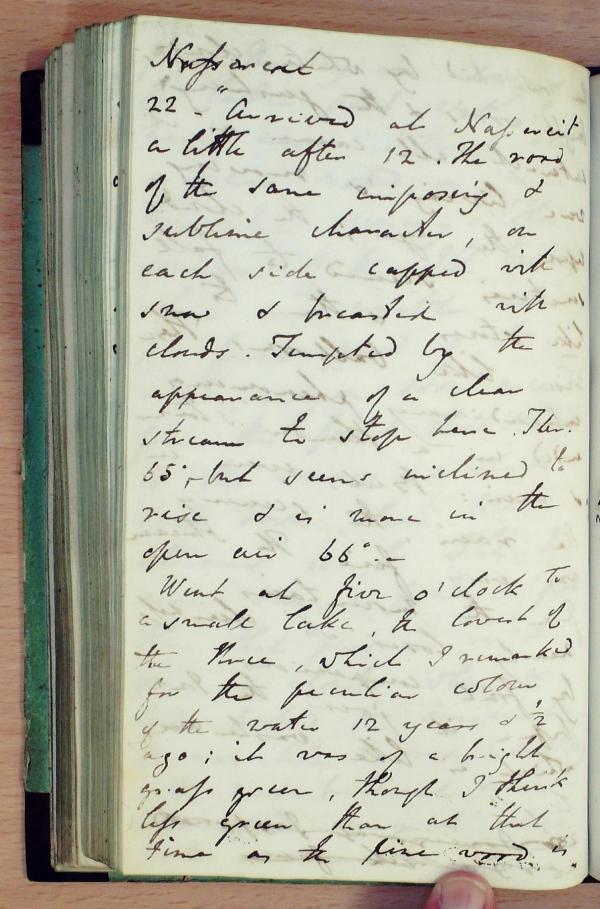 Nassereit
22 - "Arrived at Nassereit
a little after 12. The road
of the same imposing &
sublime character, on
each side capped with
snow & breasted with
clouds. Tempted by the
appearance of a clear
stream to stop here. Ther.
65°, but seems inclined to
rise & is more in the
open air 66°.-
Went at five o'clock to
a small lake, the lowest of
the three, which I remarked
for the peculiar colour
of the water 12 years & ½
ago; it was of a bright
grass green, though I think
less green than at that
time as the pine wood is